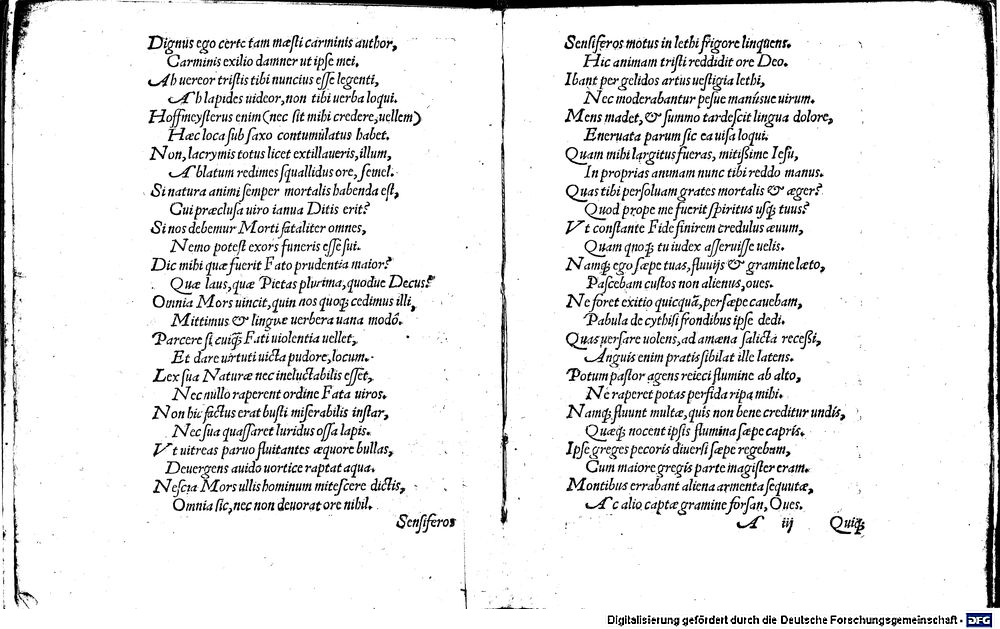 Dignus ego certe tam mæsti carminis author,
Carminis exilio damner ut ipse mei.
Ah uereor tristis tibi nuncius esse legenti,
Ah lapides uideor, non tibi uerba loqui.
Hoffmeysterus enim (nec sit mihi credere, uellem)
Hæc loca sub saxo contumulatus habet.
Non, lacrymis totus licet extillaueris, illum,
Ablatum redimes squallidus ore, semel.
Si natura animi semper mortalis habenda est,
Cui præclusa uiro ianua Ditis erit?
Si nos debemur Morti fataliter omnes,
Nemo potest exors funeris esse sui.
Dic mihi quæ fuerit Fato prudentia maior?
Quæ laus, quæ Pietas plurima, quodue Decus?
Omnia Mors uincit, quin nos quoq; cedimus illi,
Mittimus & linguæ uerbera uana modó.
Parcere si cuiq; Fati uiolentia uellet,
Et dare uirtuti uicta pudore, locum.
Lex sua Naturæ nec ineluctabilis esset,
Nec nullo raperent ordine Fata uiros.
Non hic factus erat busti miserabilis instar,
Nec sua quassaret luridus ossa lapis.
Vt uitreas paruo fluitantes æquore bullas,
Deuergens auido uortice raptat aqua.
Nescia Mors ullis hominum mitescere dictis,
Omnia sic, nec non deuorat ore nihil.
Sensiferos
Sensiferos motus in lethi frigore linquens.
Hic animam tristi reddidit ore Deo.
Ibant per gelidos artus uestigia lethi,
Nec moderabantur pesue manúsue uirum.
Mens madet, & summo tardescit lingua dolore,
Eneruata parum sic ea uisa loqui.
Quam mihi largitus fueras, mitißime Iesu,
In proprias animam nunc tibi reddo manus.
Quas tibi persoluam grates mortalis & æger?
Quod prope me fuerit spiritus usq; tuus?
Vt constante Fide finirem credulus æuum,
Quam quoq; tu iudex asseruisse uelis.
Namq; ego sæpe tuas, fluuijs & gramine læto,
Pascebam custos non alienus, oues.
Ne foret exitio quicquã, persæpe cauebam,
Pabula de cythisi frondibus ipse dedi.
Quas uersare uolens, ad amæna salicta recessi,
Anguis enim pratis sibilat ille latens.
Potum pastor agens reieci flumine ab alto,
Ne raperet potas perfida ripa mihi.
Namq; fluunt multæ, quis non bene creditur undis,
Quæq; nocent ipsis flumina sæpe capris.
Ipse greges pecoris diuersi sæpe regebam,
Cum maiore gregis parte magister eram.
Montibus errabant aliena armenta sequutæ,
Ac alio captæ gramine forsan, Oues.
A iij Quiq;
Digitalisierung gefördert durch die Deutsche Forschungsgemeinschaft - DFG